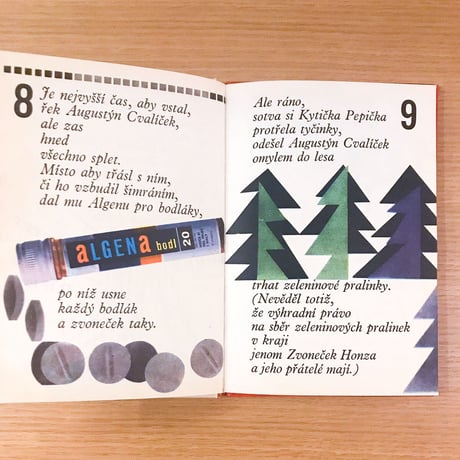 8
Je nejvyšší čas, aby vstal,
řek Augustýn Cvalíček,
ale zas
hned
všechno splet.
Místo aby třásl s ním,
či ho vzbudil šimráním,
dal mu Algenu pro bodláky,
aLGENa bodl
20
po níž usne
každý bodlák
a zvoneček taky.
9
Ale ráno,
sotva si Kytička Pepička
protřela tyčinky,
odešel Augustýn Cvalíček
omylem do lesa
trhat zeleninové pralinky.
(Nevěděl totiž,
že výhradní právo
na sběr zeleninových pralinek
v kraji
jenom Zvoneček Honza
a jeho přátelé mají.)